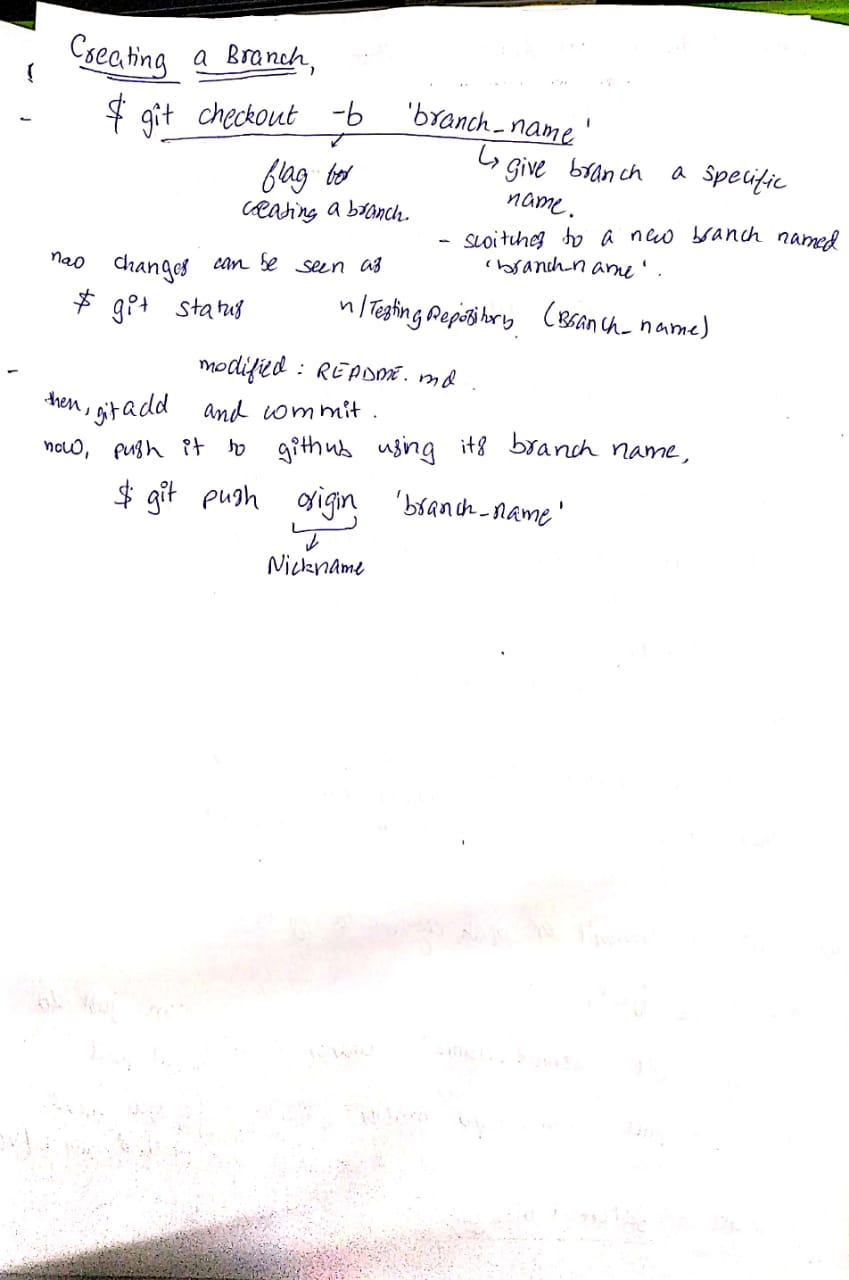 Creating a Branch,
- $ git checkout -b 'branch_name'
↳ give branch a specific
name.
flag for
creating a branch.
- switches to a new branch named
'branch_name'.
changes can be seen as
$ git status n/Testing Repository (Branch_name)
- modified: README.md.
then, git add and commit.
now, push it to github using its branch name,
$ git push origin 'branch_name'
Nickname